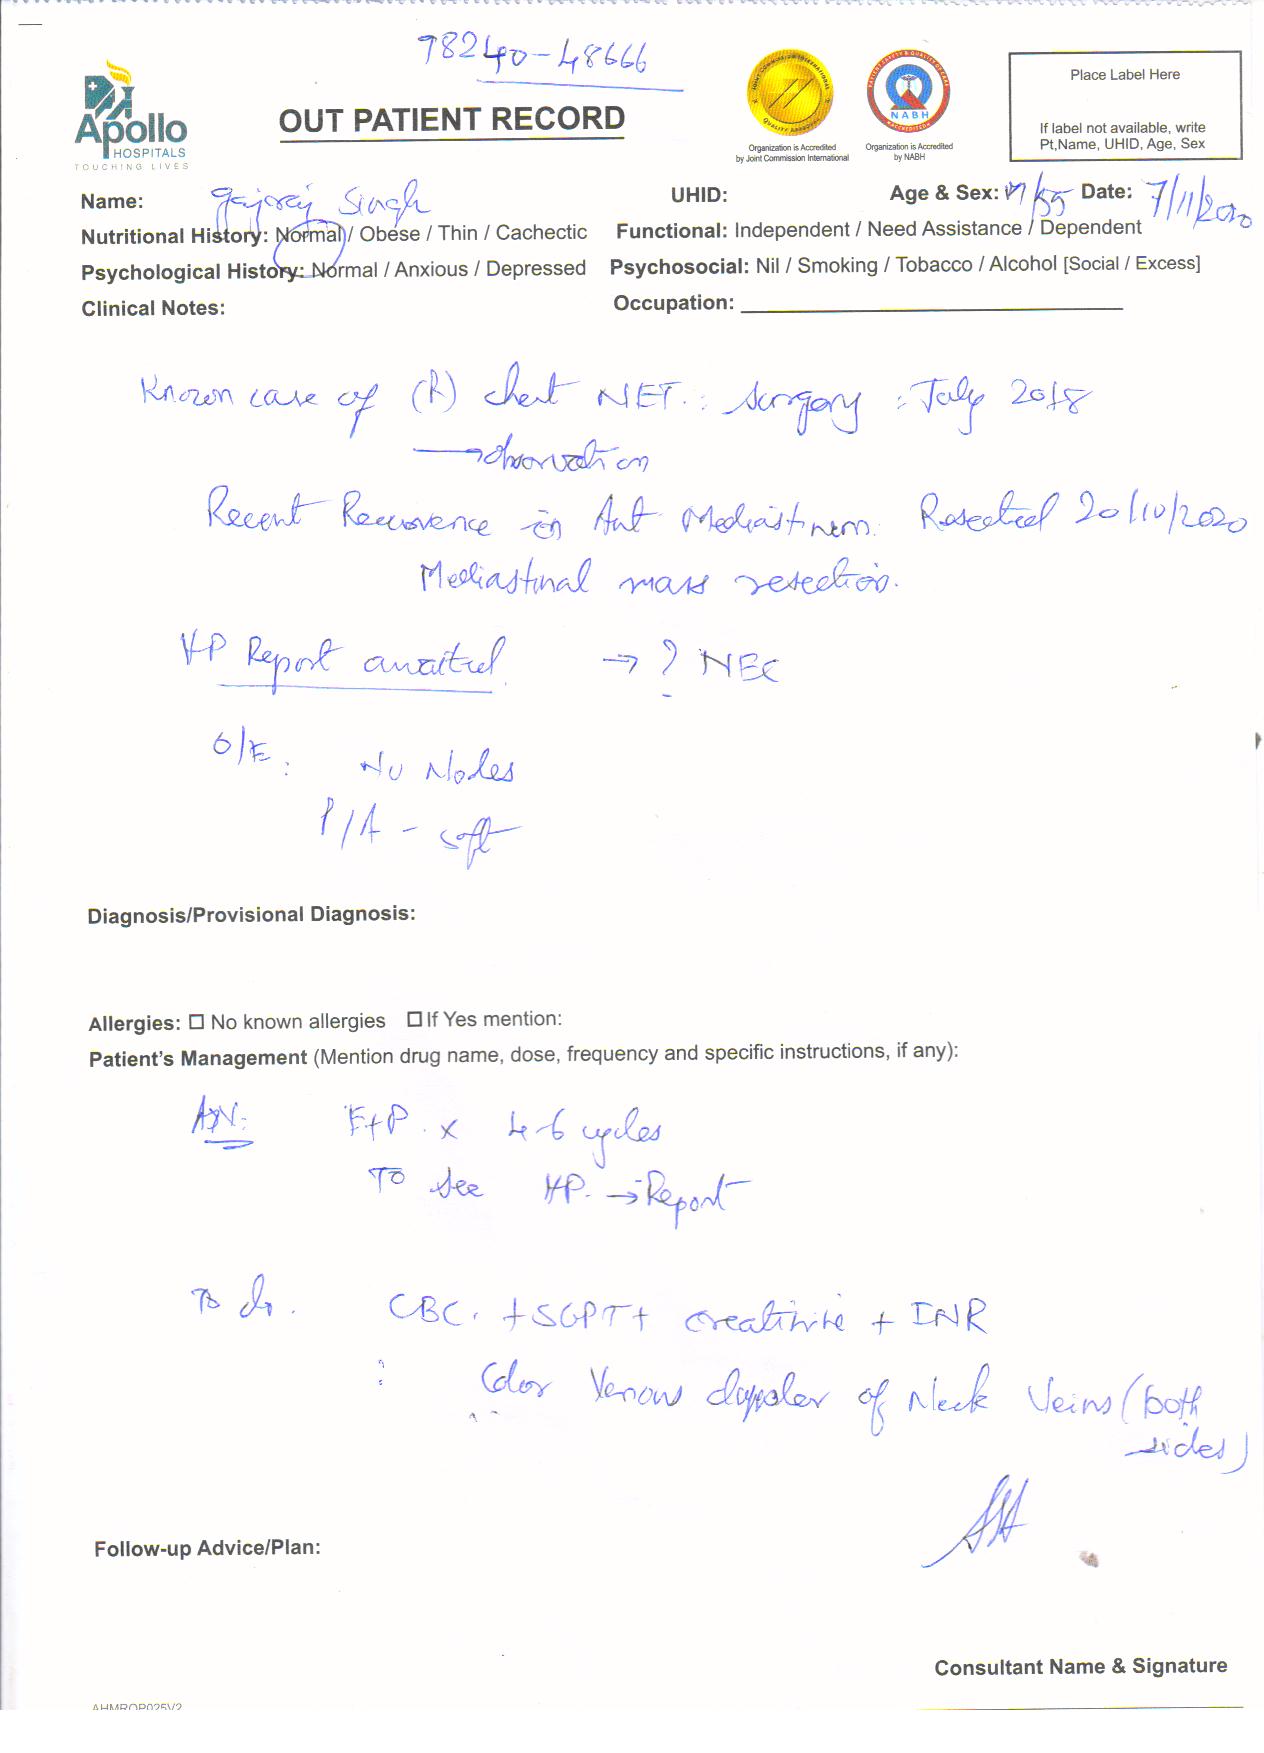 98240-48666
Apollo
HOSPITALS
TOUCHING LIVES
OUT PATIENT RECORD
JOINT COMMISSION INTERNATIONAL
QUALITY APPROVAL
Organization is Accredited
by Joint Commission International
NABH
ACCREDITED
Organization is Accredited
by NABH
Place Label Here
If label not available, write
Pt,Name, UHID, Age, Sex
Name: Gajraj Singh UHID: Age & Sex: M/55 Date: 7/11/2020
Nutritional History: Normal / Obese / Thin / Cachectic Functional: Independent / Need Assistance / Dependent
Psychological History: Normal / Anxious / Depressed Psychosocial: Nil / Smoking / Tobacco / Alcohol [Social / Excess]
Clinical Notes: Occupation:
Known case of (R) chest NET. : Surgery : July 2018
→ observation
Recent Recurrence in Ant Mediastinum. Resected 20/10/2020
Mediastinal mass resection.
HP Report awaited → ? NEC
O/E : No Nodes
P/A - soft
Diagnosis/Provisional Diagnosis:
Allergies: ☐ No known allergies ☐ If Yes mention:
Patient's Management (Mention drug name, dose, frequency and specific instructions, if any):
Adv: E+P x 4-6 cycles
To see HP. → Report
To do. CBC. + SGPT + creatinine + INR
: Color Venous doppler of Neck Veins (both
sides)
Follow-up Advice/Plan:
Consultant Name & Signature
AHMROP025V2